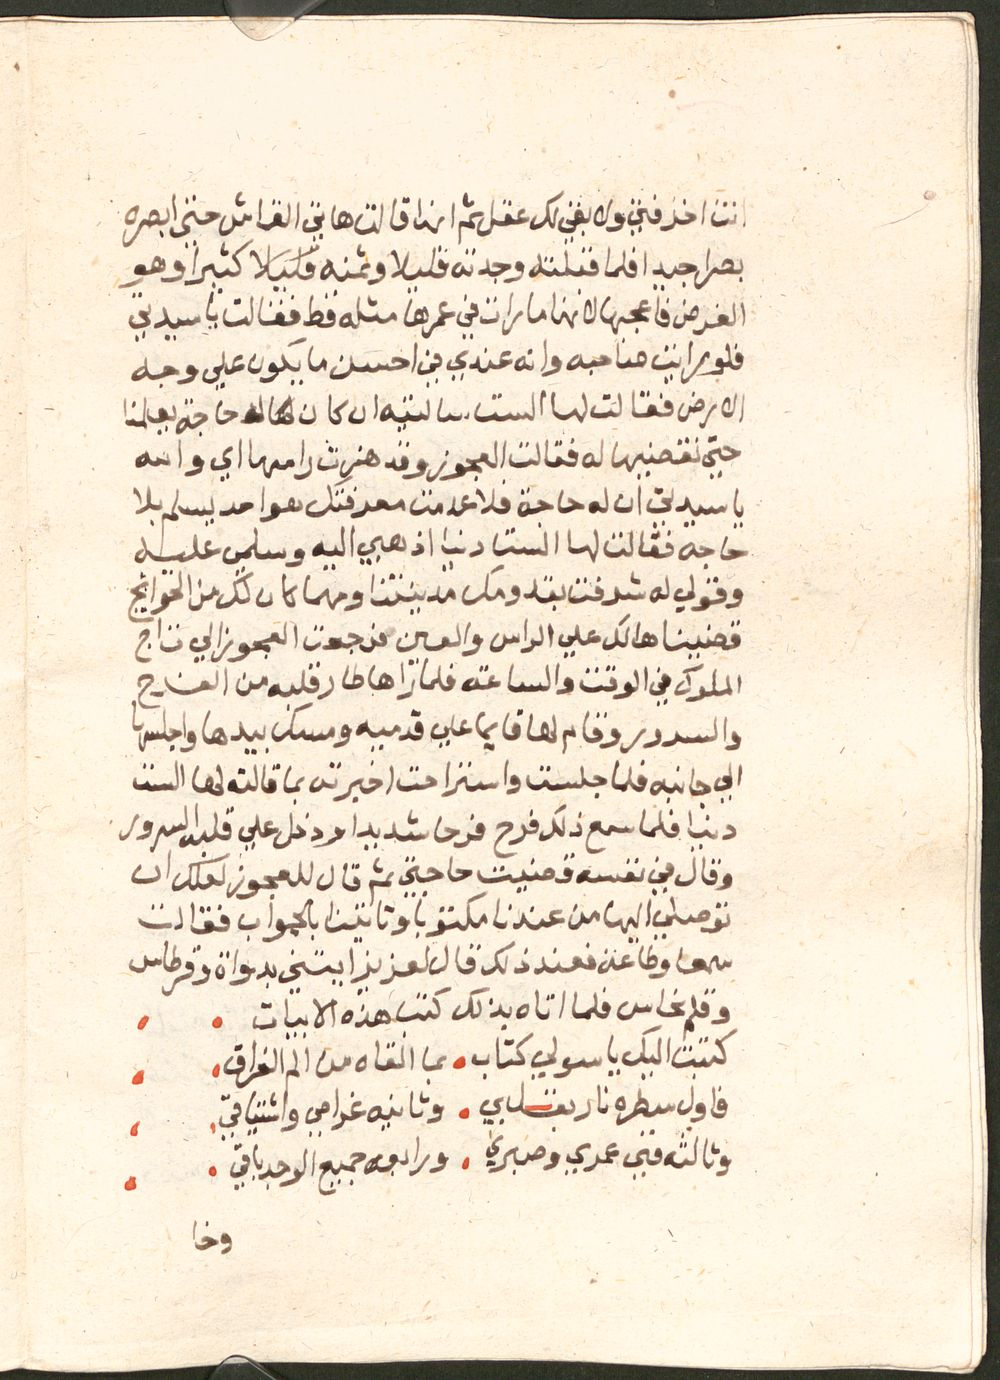 انت اخرفتي ولا بقي لك عقل ثم انها قالت هاتي القماش حتى ابصره
بصرا جيدا فلما قبلته وجدته قليلا وثمنه قليلا كثيرا وهو
الغرض فاعجبها لانها ما رات في عمرها مثله قط فقالت يا سيدتي
فلو رايت صاحبه وانه عندي من احسن ما يكون علي وجه
الارض فقالت لها الست سالتيه ان كان له حاجة يعلمنا
حتي نقضيها له فقالت العجوز وقد هزت راسها اي والله
يا سيدتي ان له حاجة فلا عدمت معرفتك هوا احد يسلم بلا
حاجه فقالت لها الست دنيا اذهبي اليه وسلمي عليه
وقولي له شرفت بقدومك مدينتنا ومهما كان لك من الحوايج
قضيناها لك علي الراس والعين فرجعت العجوز الي تاج
الملوك في الوقت والساعته فلما راها طار قلبه من الفرح
والسرور وقام لها قايما علي قدميه ومسك بيدها واجلسها
الي جانبه فلما جلست واستراحت اخبرته بما قالته لها الست
دنيا فلما سمع ذلك فرح فرحا شديدا ودخل علي قلبه السرور
وقال في نفسه قضيت حاجتي ثم قال للعجوز لعلك ان
توصلي اليها من عندنا مكتوبا وتاتينا بالجواب فقالت
سمعا وطاعة فعند ذلك قال لعزيز ايتني بدواة وقرطاس
وقلم نحاس فلما اتاه بذلك كتب هذه الابيات
كتبت اليك يا سولي كتاب . بما القاه من الم الفراق
فاول سطره نار بقلبي . وثانيه غرامي واشتياقي
وثالثه فني عمري وصبري . ورابعه جميع الوجد باقي
وخا